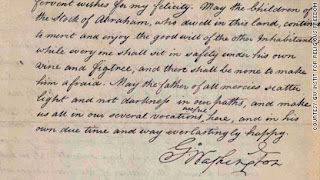 fervent wishes for my felicity. May the Children of
the Stock of Abraham, who dwell in this land, continue
to merit and enjoy the good will of the other Inhabitants
while every one shall sit in safety under his own
vine and figtree, and there shall be none to make
him afraid. May the father of all mercies scatter
light and not darkness in our paths, and make
us all in our several vocations useful here, and in his
own due time and way everlastingly happy.
G. Washington
COURTESY GW INSTIT FOR RELIGIOUS FREEDOM